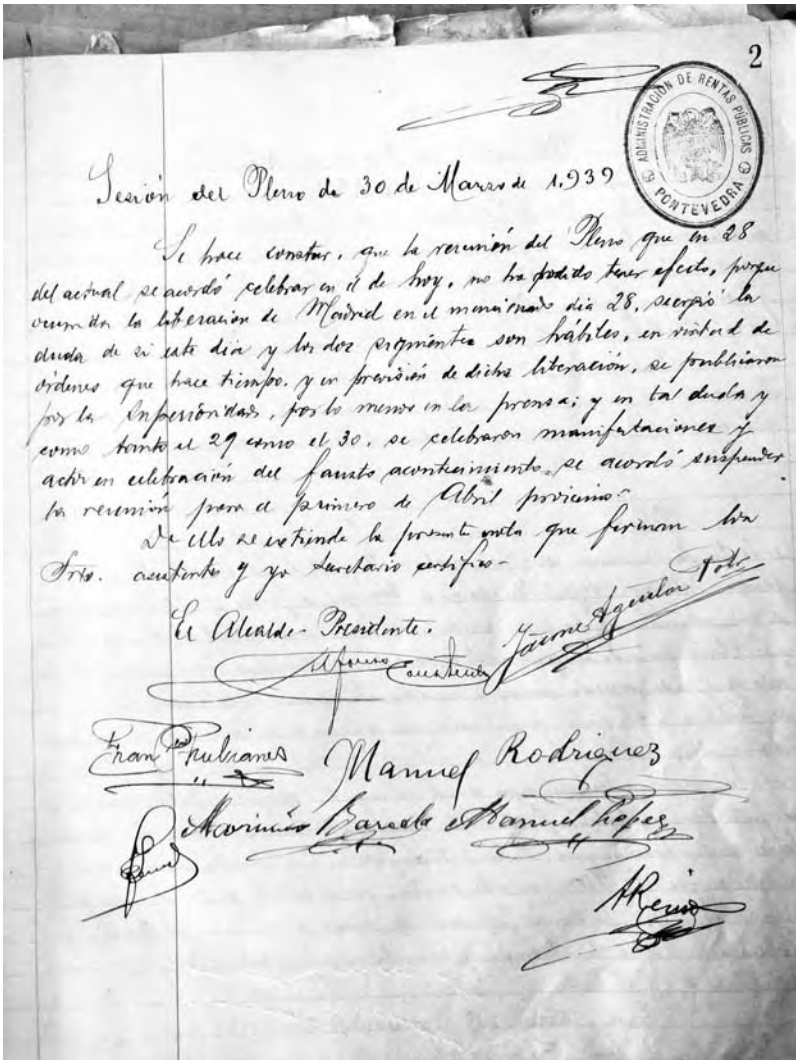 2
ADMINISTRACIÓN DE RENTAS PÚBLICAS
PONTEVEDRA
Sesión del Pleno de 30 de Marzo de 1.939
Se hace constar, que la reunión del Pleno que en 28
del actual se acordó celebrar en el de hoy, no ha podido tener efecto, porque
ocurrida la liberación de Madrid en el mencionado dia 28, surgió la
duda de si este dia y los dos siguientes son hábiles, en virtud de
órdenes que hace tiempo, y en previsión de dicha liberación, se publicaron
por la Superioridad, por lo menos en la prensa; y en tal duda y
como tanto el 29 como el 30, se celebraron manifestaciones y
actos en celebración del fausto acontecimiento, se acordó suspender
la reunión para el primero de Abril próximo.-
De ello se extiende la presente nota que firman los
Sres. asistentes y yo Secretario certifico-
El Alcalde-Presidente.
Jaime Aguilar
Manuel Rodriguez
Manuel